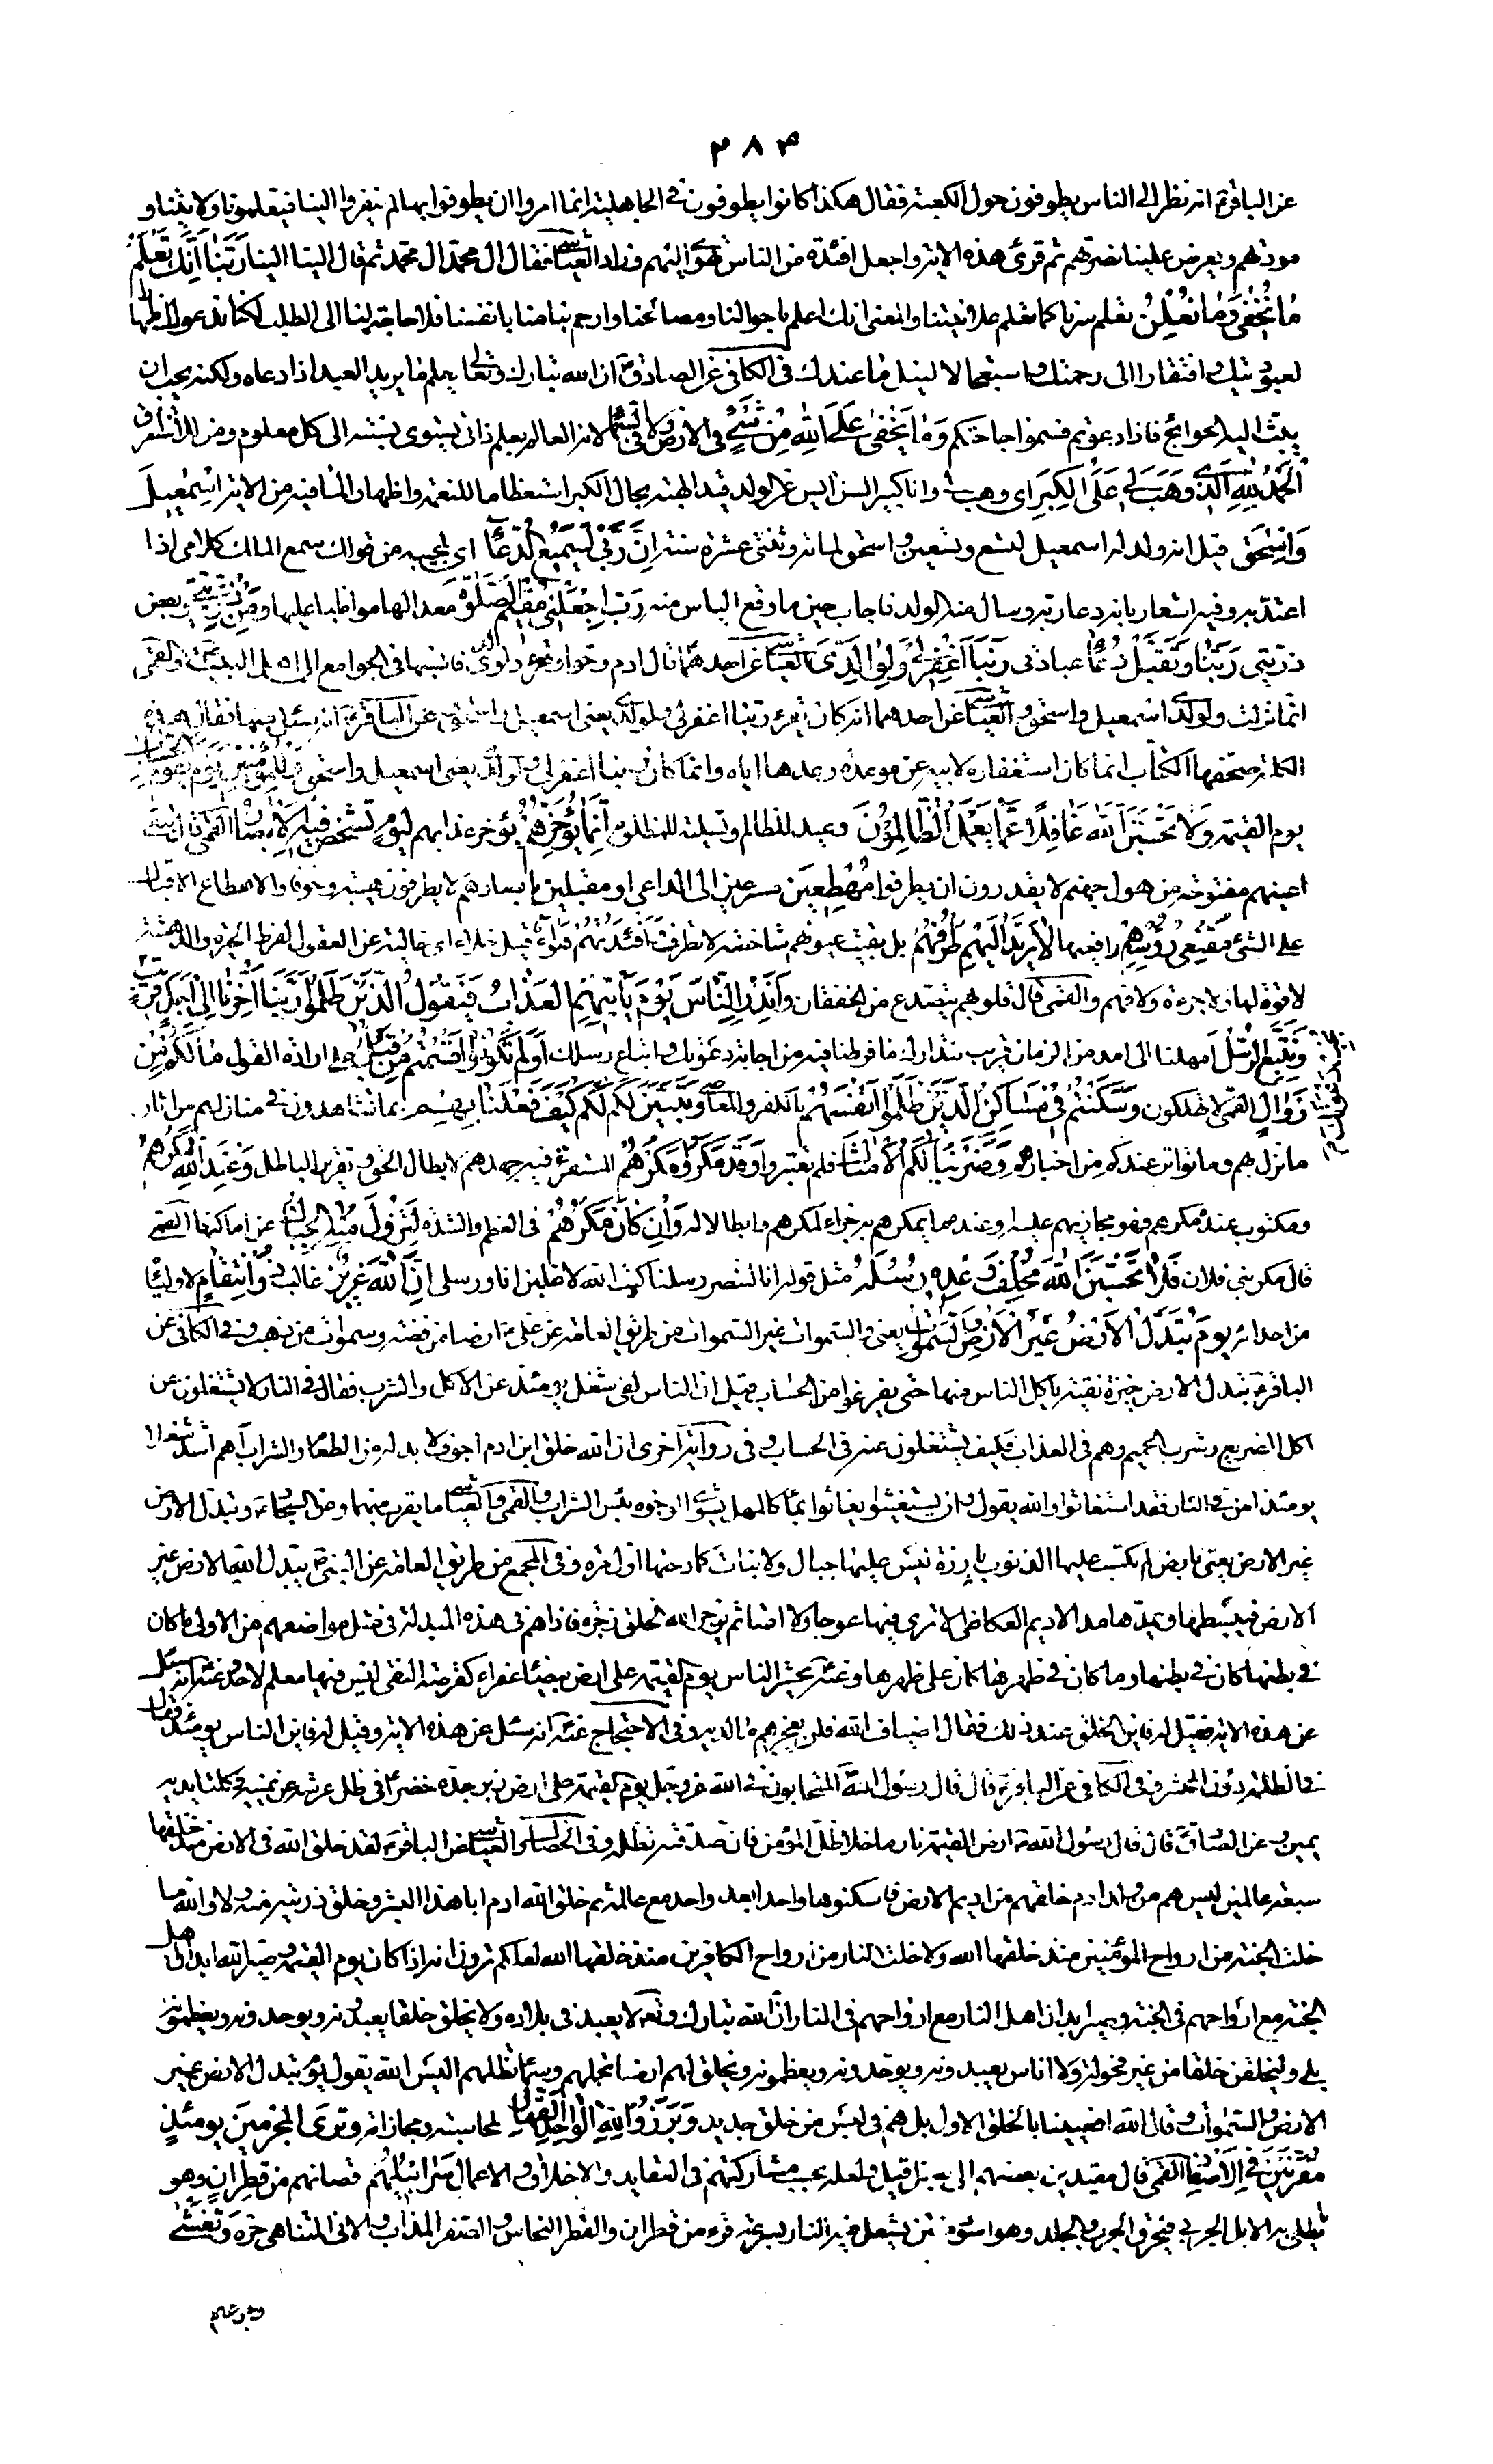 ٣٨٤
عن الباقر ع انه نظر الى الناس يطوفون حول الكعبة فقال هكذا كانوا يطوفون في الجاهلية انما امروا ان يطوفوا بها ثم ينفروا الينا فيعلمونا ولايتنا و
مودتهم ويعرض علينا نصرتهم ثم قرئ هذه الاية واجعل افئدة من الناس تهوي اليهم وزاد العياشي فقال ال محمد ال محمد ثم قال الينا الينا رَبَّنا اِنَّكَ تَعْلَمُ
مٰا نُخْفي وَمٰا نُعْلِنُ تعلم سرنا كما تعلم علانيتنا والمعنى انك اعلم باحوالنا ومصالحنا وارحم بنا منا بانفسنا فلا حاجة لنا الى الطلب لكنا ندعوك اظهارا
لعبوديتك وافتقارا الى رحمتك واستعجالا لنيل ما عندك في الكافي عن الصادق ع ان الله تبارك وتعالى يعلم ما يريد العبد اذا دعاه ولكنه يحب ان
يبث اليه الحوائج فاذا دعوتم فسموا حاجتكم وَمٰا يَخْفىٰ عَلَى اللهِ مِنْ شَيْءٍ فِي الْاَرْضِ وَلا فِي السَّماءِ لانه العالم بعلم ذاتي يستوي نسبته الى كل معلوم ومن للاستغراق
اَلْحَمْدُ لِلّٰهِ الَّذي وَهَبَ لي عَلَى الْكِبَرِ اي وهب لي وانا كبير السن ايس عن الولد قيد الهبة بحال الكبر استعظاما للنعمة واظهارا لما فيه من الاية اِسْمٰعيلَ
وَاِسْحٰقَ قيل انه ولد له اسمعيل لتسع وتسعين واسحق لمائة وثنتي عشرة سنة اِنَّ رَبّي لَسَميعُ الدُّعاءِ اي لمجيبه من قولك سمع الملك كلامي اذا
اعتد به وفيه اشعار بانه دعا ربه وسال منه الولد فاجاب حين ما وقع الياس منه رَبِّ اجْعَلْني مُقيمَ الصَّلٰوةِ معدا لها مواظبا عليها وَمِنْ ذُرِّيَّتي وبعض
ذريتي رَبَّنا وَتَقَبَّلْ دُعاءِ عبادتي رَبَّنا اغْفِرْ لي وَلِوالِدَيَّ العياشي عن احدهما قال ادم وحوا
انما نزلت ولولدي اسمعيل واسحق والعياشي عن احدهما انه كان يقرء ربنا اغفر لي ولولدي يعني اسمعيل واسحق وعن الباقر ع انه سئل عنها فقال هذه
الكلمة صحفها الكتاب انما كان استغفاره لابيه عن موعدة وعدها اياه وانما كان ربنا اغفر لي ولولدي يعني اسمعيل واسحق وَلِلْمُؤْمِنينَ يَوْمَ يَقُومُ الْحِسابُ
يوم القيمة وَلا تَحْسَبَنَّ اللهَ غافِلاً عَمّا يَعْمَلُ الظّالِمُونَ وعيد للظالم وتسلية للمظلوم اِنَّما يُؤَخِّرُهُمْ يؤخر عذابهم لِيَوْمٍ تَشْخَصُ فيهِ الْاَبْصارُ القمي قال تبقى
اعينهم مفتوحة من هول جهنم لا يقدرون ان يطرفوا مُهْطِعينَ مسرعين الى الداعي او مقبلين بابصارهم لا يطرفون هيبة وخوفا والاهطاع الاقبال
على الشئ مُقْنِعي رُؤُسِهِمْ رافعيها لا يَرْتَدُّ اِلَيْهِمْ طَرْفُهُمْ بل بقيت عيونهم شاخصة لا تطرف وَاَفْئِدَتُهُمْ هَواءٌ قيل خلاء اي خالية عن العقول لفرط الحيرة والدهشة
لا قوة لها ولا جرءة ولا فهم والقمي قال قلوبهم يتصدع من الخفقان وَاَنْذِرِ النّاسَ يَوْمَ يَأْتيهِمُ الْعَذابُ فَيَقُولُ الَّذينَ ظَلَمُوا رَبَّنا اَخِّرْنا اِلىٰ اَجَلٍ قَريبٍ
وَنَتَّبِعِ الرُّسُلَ امهلنا الى امد من الزمان قريب نتدارك ما فرطنا فيه من اجابة دعوتك واتباع رسلك اَوَلَمْ تَكُونُوا اَقْسَمْتُمْ مِنْ قَبْلُ على ارادة القول ما لَكُمْ مِنْ
زَوالٍ القمي لا تهلكون وَسَكَنْتُمْ في مَساكِنِ الَّذينَ ظَلَمُوا اَنْفُسَهُمْ بالكفر والمعاصي وَتَبَيَّنَ لَكُمْ كَيْفَ فَعَلْنا بِهِمْ بما تشاهدون في منازلهم من اثار
ما نزل بهم وما تواتر عندكم من اخبارهم وَضَرَبْنا لَكُمُ الْاَمْثالَ فلم تعتبروا وَقَدْ مَكَرُوا مَكْرَهُمْ المستفرغ فيه جهدهم لابطال الحق وتقرير الباطل وَعِنْدَ اللهِ مَكْرُهُمْ
ومكتوب عنده مكرهم فهو مجازيهم عليه او عنده ما يمكرهم به جزاء لمكرهم وابطالا له وَاِنْ كانَ مَكْرُهُمْ في العظم والشدة لِتَزُولَ مِنْهُ الْجِبالُ عن اماكنها القمي
قال مكر بني فلان فَلا تَحْسَبَنَّ اللهَ مُخْلِفَ وَعْدِهِ رُسُلَهُ مثل قوله انا لننصر رسلنا كتب الله لاغلبن انا ورسلي اِنَّ اللهَ عَزيزٌ غالب ذُو انْتِقامٍ لاوليائه
من اعدائه يَوْمَ تُبَدَّلُ الْاَرْضُ غَيْرَ الْاَرْضِ وَالسَّمٰواتُ يعني والسموات غير السموات من طريق العامة عن علي ع ارضا من فضة وسموات من ذهب وفي الكافي عن
الباقر ع تبدل الارض خبزة نقية ياكل الناس منها حتى يفرغوا من الحساب قيل ان الناس لفي شغل يومئذ عن الاكل والشرب فقال في النار لا يشتغلون عن
اكل الضريع وشرب الحميم وهم في العذاب فكيف يشتغلون عنه في الحساب وفي رواية اخرى ان الله خلق ابن ادم اجوف لا بد له من الطعام والشراب اهم اشد شغلا
يومئذ ام من في النار فقد استغاثوا والله يقول وان يستغيثوا يغاثوا بماء كالمهل يشوي الوجوه بئس الشراب والقمي والعياشي ما يقرب منهما وعن السجاد ع تبدل الارض
غير الارض يعني بارض لم يكتسب عليها الذنوب بارزة ليس عليها جبال ولا نبات كما دحيها اول مرة وفي المجمع من طريق العامة عن النبي ص يبدل الله الارض غير
الارض فيبسطها ويمدها مد الاديم العكاظي لا ترى فيها عوجا ولا امتا ثم يزجر الله الخلق زجرة فاذا هم في هذه المبدلة في مثل مواضعهم من الاولى ما كان
في بطنها كان في بطنها وما كان في ظهرها كان على ظهرها وعنه يحشر الناس يوم القيمة على ارض بيضاء عفراء كقرصة النقي ليس فيها معلم لاحد وعنه انه سئل
عن هذه الاية فقيل له فاين الخلق عند ذلك فقال اضياف الله فلن يعجزهم ما لديه وفي الاحتجاج عنه انه سئل عن هذه الاية وقيل له فاين الناس يومئذ فقال
في الظلمة دون المحشر وفي الكافي عن الباقر ع قال قال رسول الله المتحابون في الله عز وجل يوم القيمة على ارض زبرجدة خضراء في ظل عرشه عن يمينه وكلتا يديه
يمين وعن الصادق ع قال قال رسول الله ص ارض القيمة نار ما خلا ظل المؤمن فان صدقته تظله وفي الخصال والعياشي عن الباقر ع لقد خلق الله في الارض منذ خلقها
سبعة عالمين ليس هم من ولد ادم خلقهم من اديم الارض فاسكنوها واحدا بعد واحد مع عالمه ثم خلق الله ادم ابا هذا البشر وخلق ذريته منه ولا والله ما
خلت الجنة من ارواح المؤمنين منذ خلقها الله ولا خلت النار من ارواح الكافرين منذ خلقها الله لعلكم ترون انه اذا كان يوم القيمة وصير الله ابدان اهل
الجنة مع ارواحهم في الجنة وصير ابدان اهل النار مع ارواحهم في النار ان الله تبارك وتعالى لا يعبد في بلاده ولا يخلق خلقا يعبدونه ويوحدونه ويعظمونه
بلى وليخلقن خلقا من غير فحولة ولا اناث يعبدونه ويوحدونه ويعظمونه ويخلق لهم ارضا تحملهم وسماء تظلهم اليس الله يقول يوم تبدل الارض غير
الارض والسموات وقال الله افعيينا بالخلق الاول بل هم في لبس من خلق جديد وَبَرَزُوا لِلّٰهِ الْواحِدِ الْقَهّارِ لمحاسبته ومجازاته وَتَرَى الْمُجْرِمينَ يَوْمَئِذٍ
مُقَرَّنينَ فِي الْاَصْفادِ القمي قال مقيدين بعضهم الى بعض قيل ولعله بحسب مشاركتهم في العقايد والاخلاق والاعمال سَرابيلُهُمْ قمصانهم مِنْ قَطِرانٍ وهو
يطلى به الابل الجربى فيحرق الجرب والجلد وهو اسود منتن يشتعل فيه النار بسرعة وقرء من قطران والقطر النحاس والصفر المذاب والاني المتناهي حره وَتَغْشىٰ
وجوههم